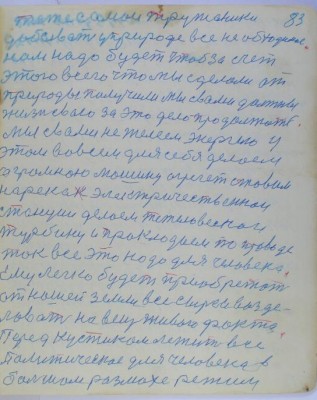 83
добывать у природе все необходим.
нам надо будет чтоб за счет
этого всего что мы сделали от
природы получили мы с вами должны
жизнь свою за это дело продолжать
мы с вами не жалеем энергию и
этом во всем для себя делаем
огромною машину агрегат ставим
на реках электрической
станции делаем
турбину и прокладаем по проводе
ток все это надо для человека.
Ему легко будет приобретать
от нашей земли все сырье воз де-
ловать на вещу живого факта.
Перед кустиком лежит все
политическое для человека в
большом размахе режим